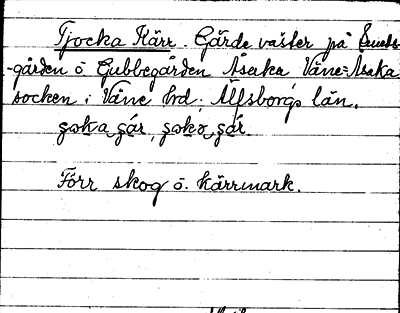 Tjocka Kärr. Gärde väster på Smeds-
-gården o. Gubbegården Åsaka Väne-Åsaka
socken i Väne hrd, Älfsborgs län.
Förr skog o. kärrmark.